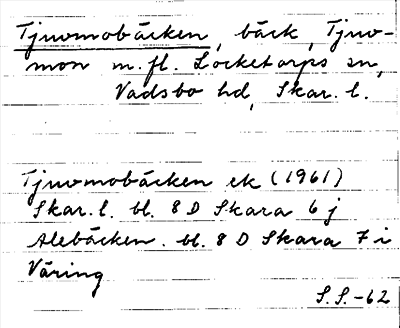 Tjuvmobäcken, bäck, Tjuv-
mon m.fl. Locketorps sn,
Vadsbo hd, Skar. l.
Tjuvmobäcken ek (1961)
Skar. l. bl. 8 D Skara 6 j
Alebäcken. bl. 8 D Skara 7 i
Väring
S.S.-62